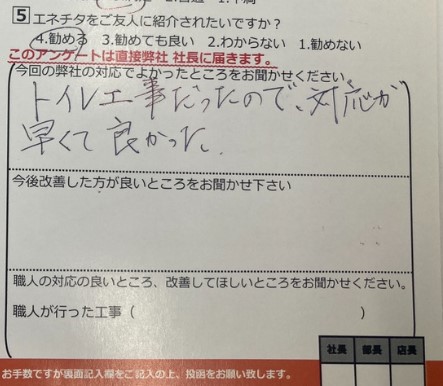 5 エネチタをご友人に紹介されたいですか?
4.勧める 3.勧めても良い 2.わからない 1.勧めない
このアンケートは直接弊社 社長に届きます。
今回の弊社の対応でよかったところをお聞かせください。
トイレ工事だったので、対応が
早くて良かった。
今後改善した方が良いところをお聞かせ下さい
職人の対応の良いところ、改善してほしいところをお聞かせください。
職人が行った工事( )
社長 部長 店長
お手数ですが裏面記入欄をご記入の上、投函をお願い致します。